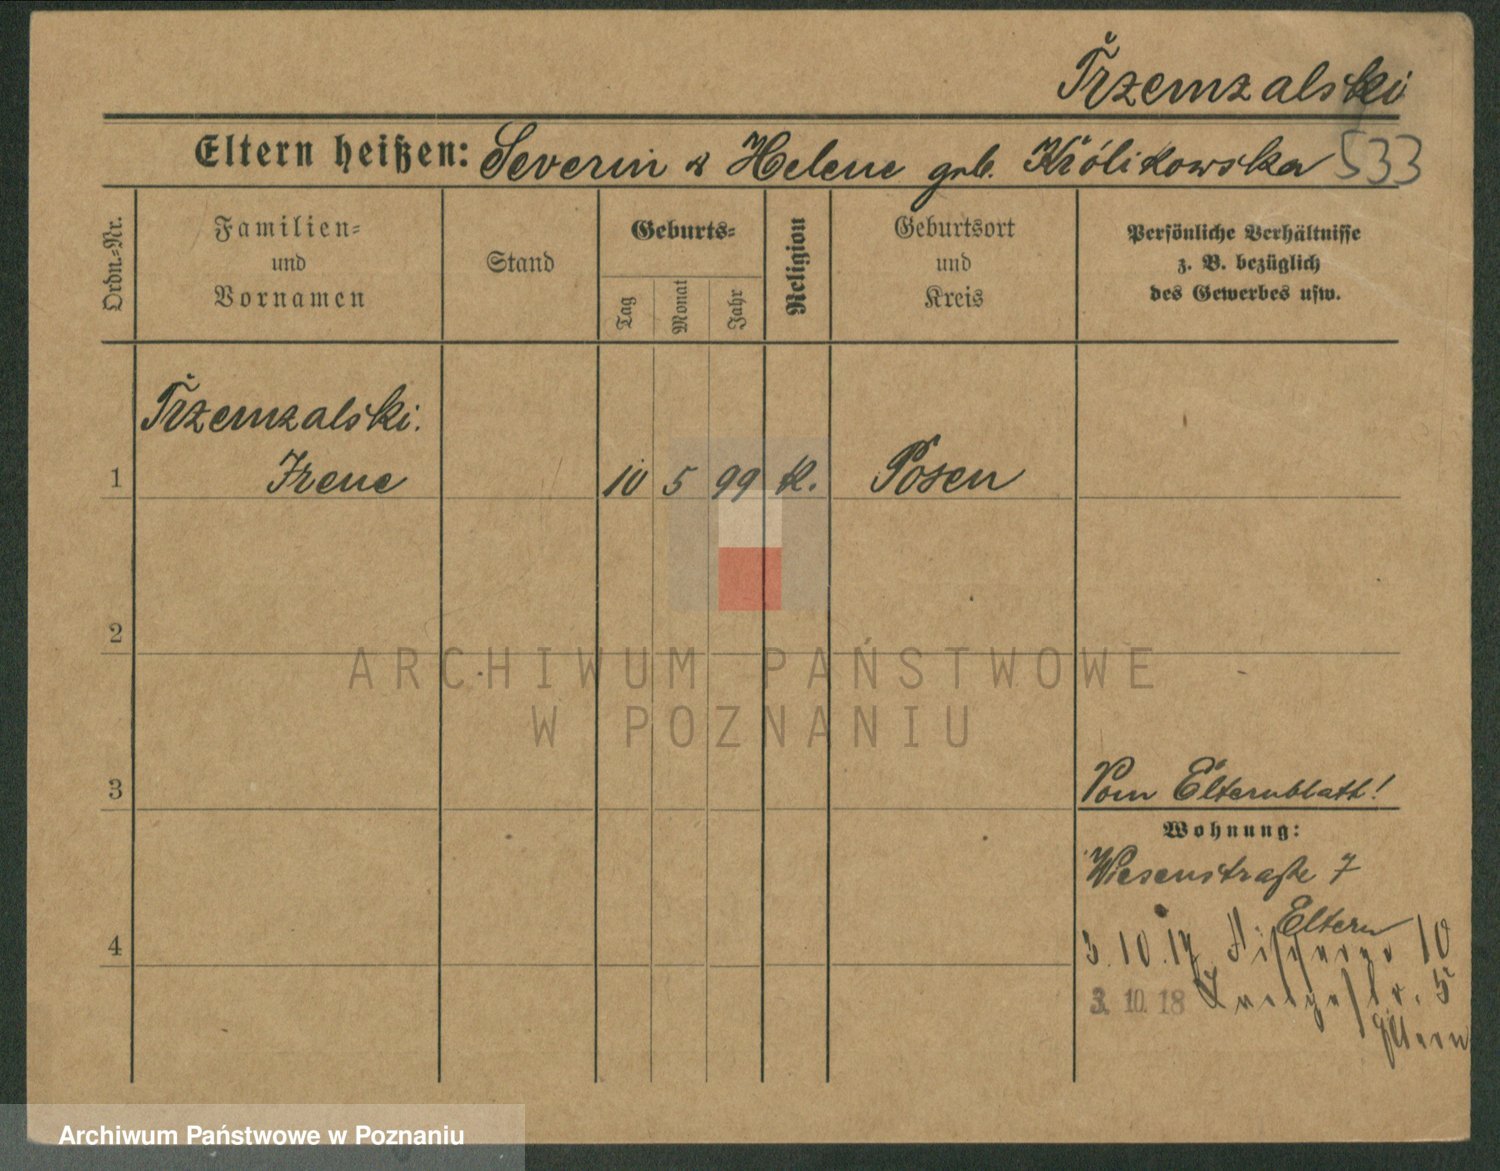 Trzemzalski
Eltern heißen: Severin & Helene geb. Królikowska 533
Ordn.-Nr.
Familien-
und
Vornamen
Stand
Geburts-
Tag
Monat
Jahr
Religion
Geburtsort
und
Kreis
Persönliche Verhältnisse
z. B. bezüglich
des Gewerbes usw.
Trzemzalski.
1 Irene 10 5 99 k. Posen
2
ARCHIWUM PAŃSTWOWE
W POZNANIU
3 Vom Elternblatt!
Wohnung:
Wiesenstraße 7
Eltern
4 3.10.17 10
3. 10. 18 5
Eltern
Archiwum Państwowe w Poznaniu